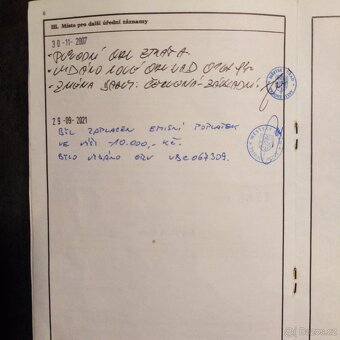 III. Místo pro další úřední záznamy
30-11-2007
-PŮVODNÍ ORV ZTRÁTA.
-VYDÁNO NOVÉ ORV
-ZMĚNA BARVY: ČERVENÁ-ZÁKLADNÍ
29-09-2021
BYL ZAPLACEN EMISNÍ POPLATEK
VE VÝŠI 10.000,- KČ.
BYLO VYDÁNO ORV UBC067309.
Bazos.cz